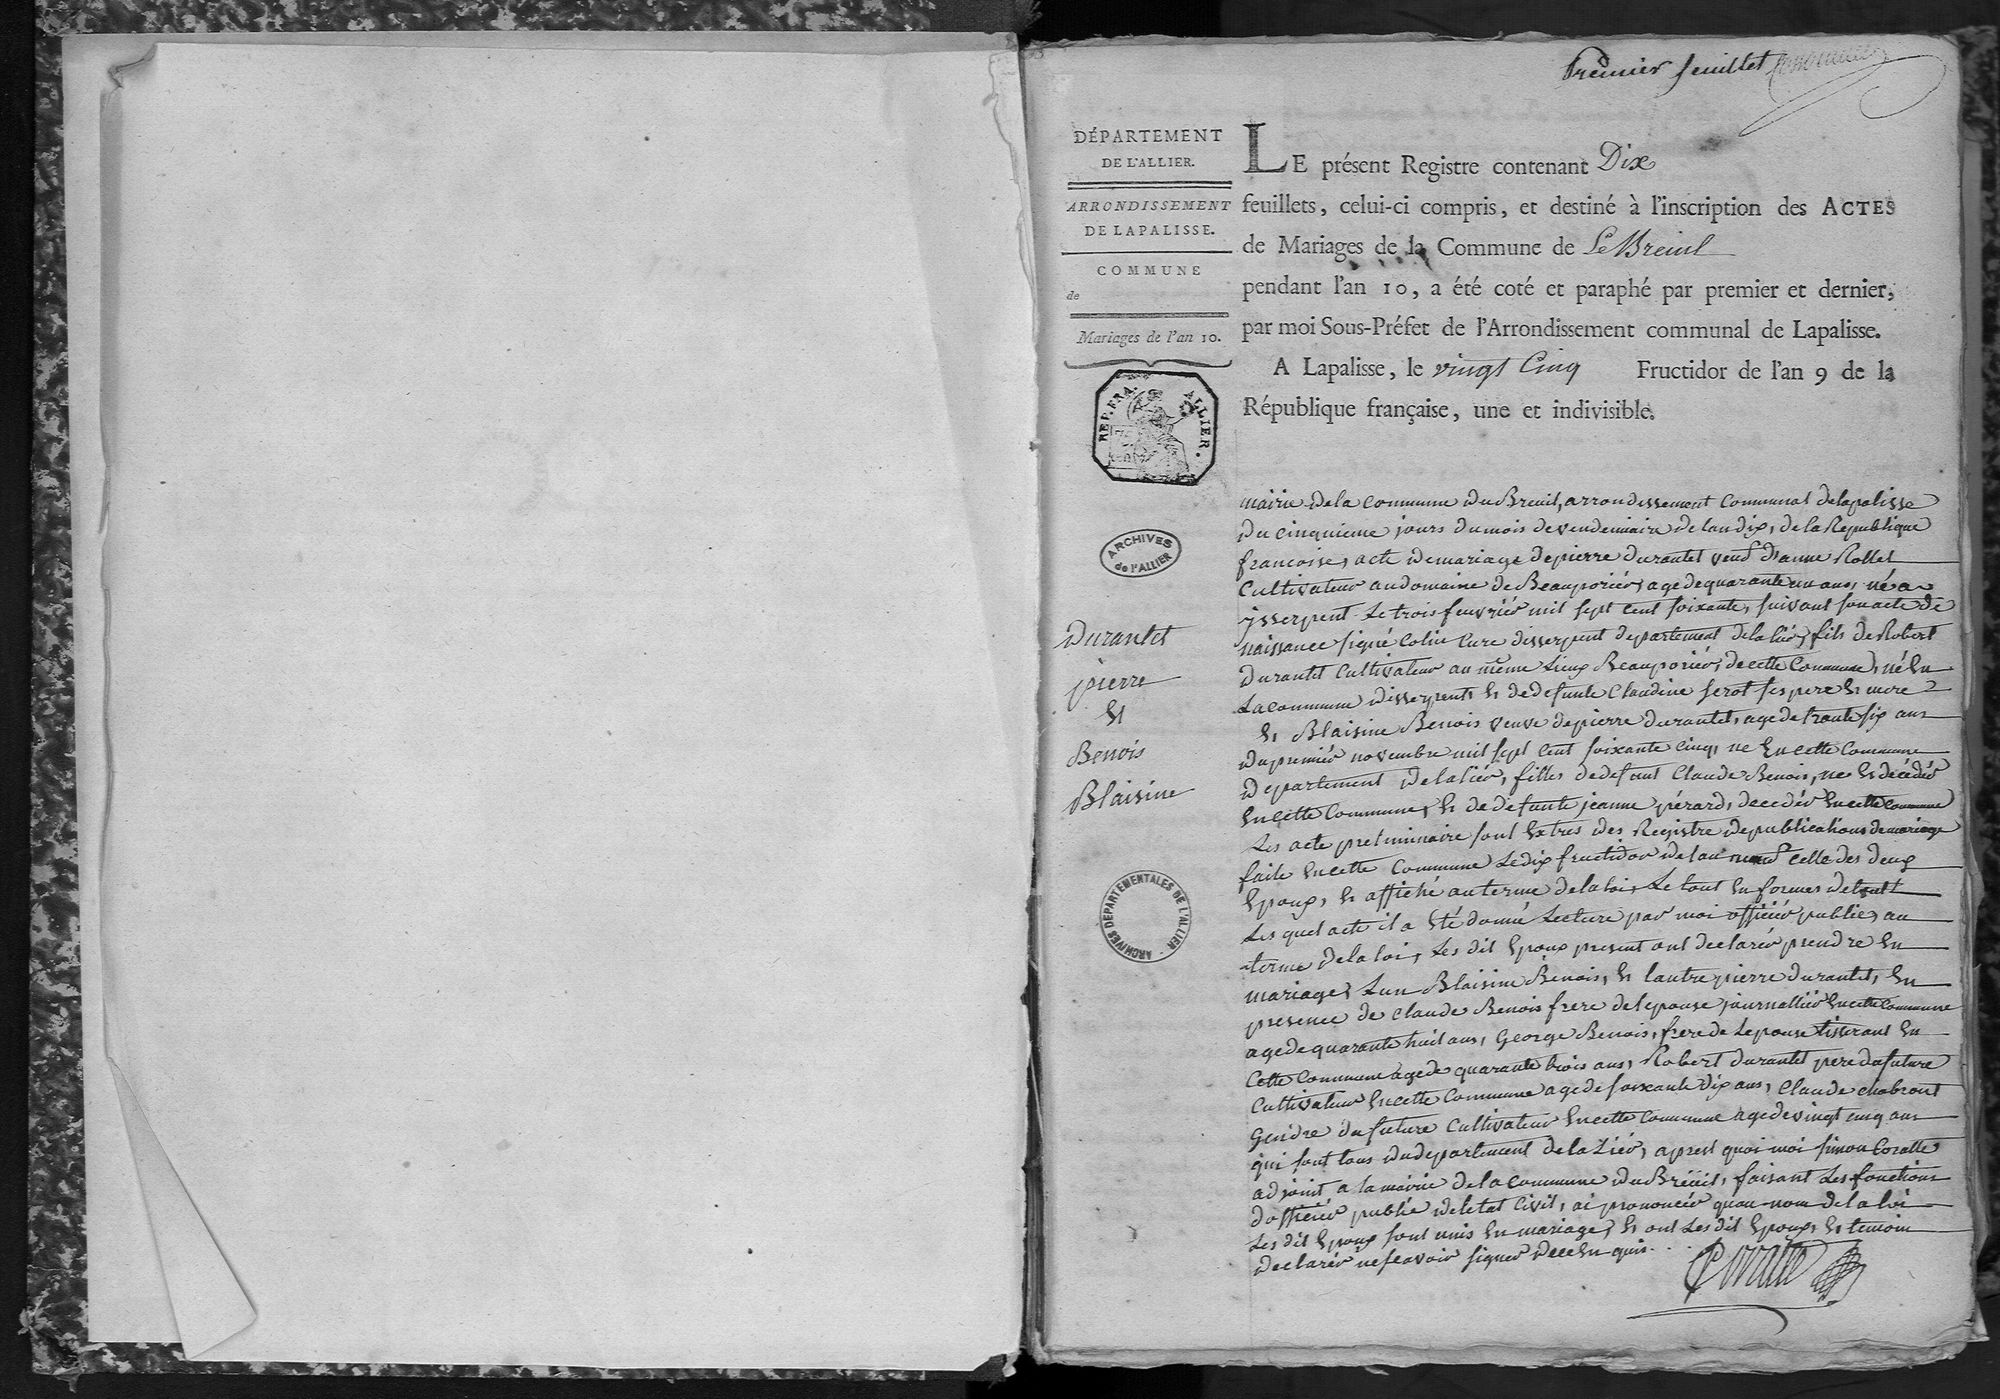 Premier feuillet
DÉPARTEMENT
DE L'ALLIER.
ARRONDISSEMENT
DE LAPALISSE.
COMMUNE
de
Mariages de l'an 10.
REP. FRA. ALLIER.
ARCHIVES
de l'ALLIER
Durantet
pierre
Et
Benois
Blaisine
ARCHIVES DÉPARTEMENTALES DE L'ALLIER
LE présent Registre contenant Dix
feuillets, celui-ci compris, et destiné à l'inscription des ACTES
de Mariages de la Commune de Le Breuil
pendant l'an 10, a été coté et paraphé par premier et dernier,
par moi Sous-Préfet de l'Arrondissement communal de Lapalisse.
A Lapalisse, le vingt Cinq Fructidor de l'an 9 de la
République française, une et indivisible.
mairie dela commune du Breuil, arrondissement Communal delapalisse
du cinquieme jours dumois devendemiaire de landix, de la Republique
francoise, acte demariage depierre durantet veuf d'anne Rollet
Cultivateur audomaine de Beauporier, age dequarante un ans, né a
isserpent Le trois feuvrier mil sept cent soixante, suivant son acte de
naissance signé Colin Cure disserpent departement delalier, fils de Robert
durantet Cultivateur au même Lieux Beauporier, decette Commune, né En
La commune disserpent, Et dedefunte Claudine ses pere Et mere
Et Blaisine Benois veuve depierre durantet, age detrante six ans
du premier novembre mil sept cent soixante cinq, ne En cette Commune
departement delalier, filles dedefunt Claude Benois, ne Et décédér
Encette Commune, Et de defunte jeanne pérard, decedér Encette commune
Les acte preliminaire sont Extres des Registre depublications demariage
faite Encette Commune Ledix fructidor delan neuf celle des deux
Epoux, Et affiché au terme dela loi, Le tout En formes
Les quel acte il a Eté donné Lecture par moi officier public, au
terme dela loi, Les dit Epoux present ont declarér prendre En
mariage, Lun Blaisine Benois, Et lautre pierre durantet, En
presence de claude Benois frere delepouse journallier Encette Commune
age de quarante huit ans, George Benois, frere de Lepouse tisserant En
Cette Commune agede quarante trois ans, Robert durantet pere dufuture
Cultivateur Encette Commune agede soixante dix ans, Claude chabront
Gendre dufuture Cultivateur Encette Commune agedevingt cinq ans
qui sont tous dudepartement de la Lier, aprest quoi moi simon Coratte
adjoint a la mairie dela commune du Breuil, faisant Les fonctions
dofficier public deletat Civil, ai prononcér quau nom dela loi
Les dit Epoux sont unis En mariage, Et ont Les dit Epoux, Et temoin
declarér nesçavoir signer decen quis
Coratte